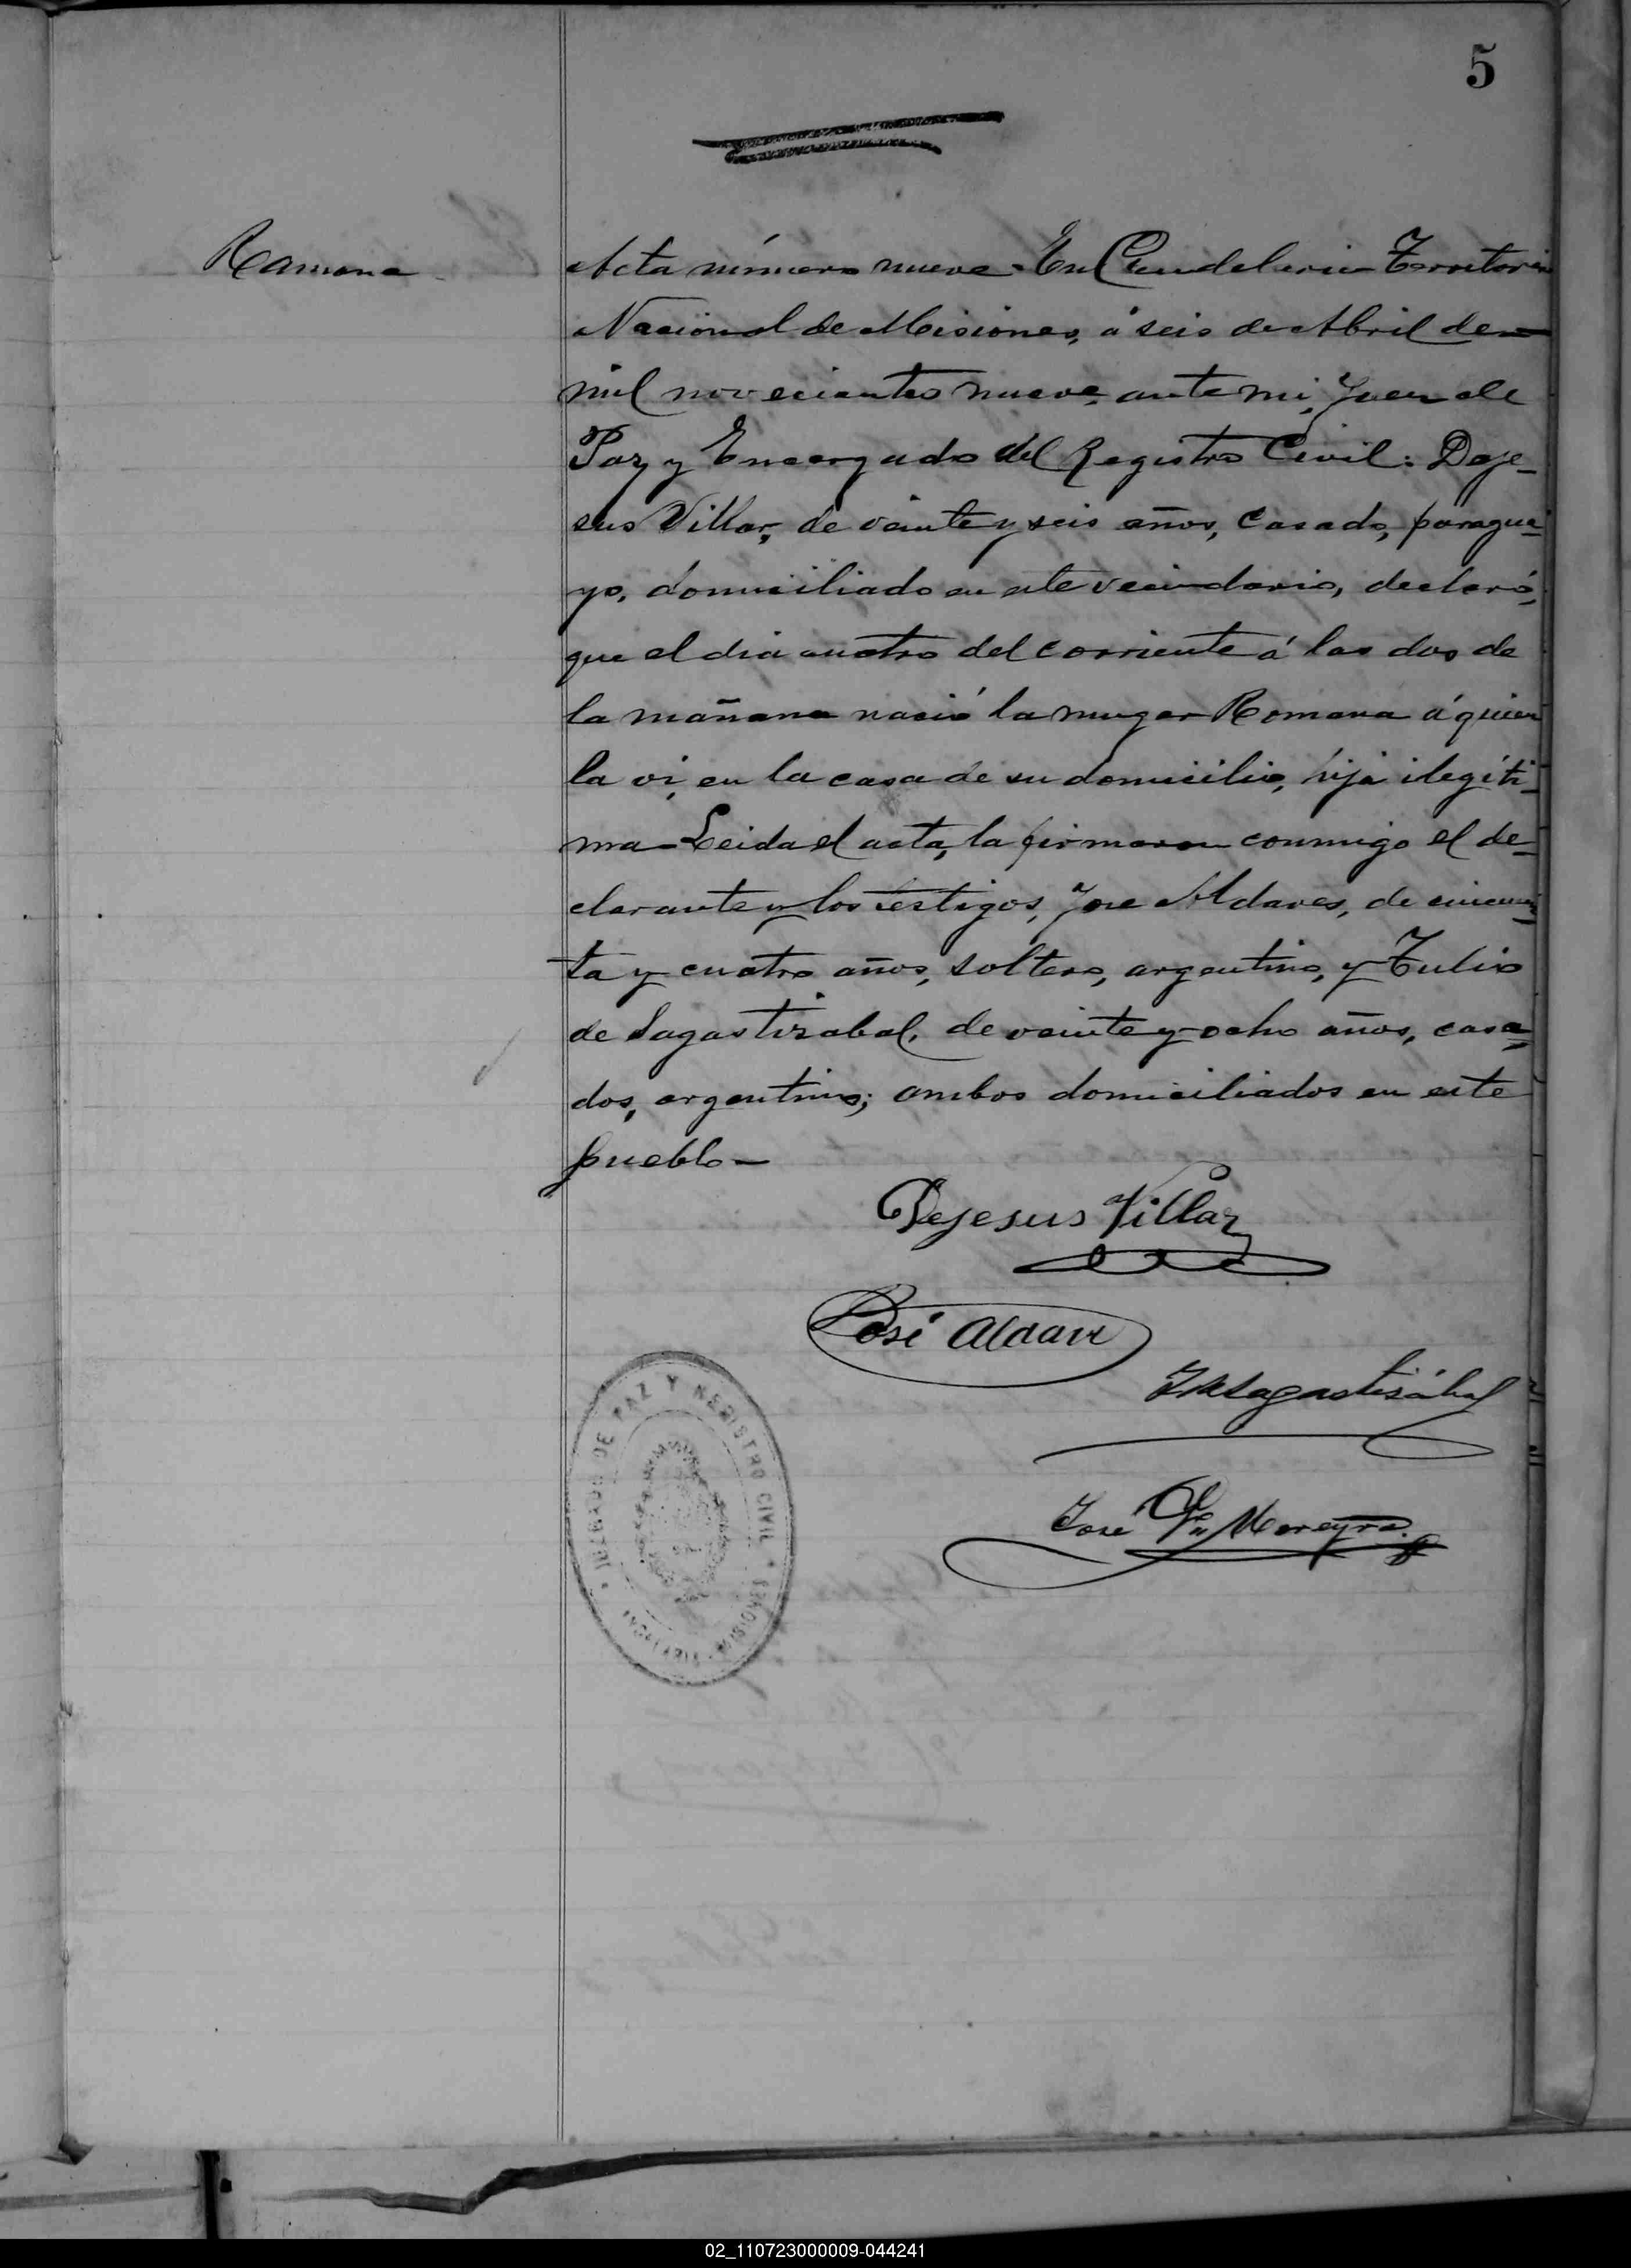 5
Ramona
Acta número nueve. En Candelaria Territorio
Nacional de Misiones, á seis de Abril de
mil novecientos nueve, ante mi, Juez de
Paz y Encargado del Registro Civil: Deje-
sus Villar, de veinte y seis años, casado, paragua-
yo, domiciliado en este vecindario, declaró,
que el dia cuatro del corriente á las dos de
la mañana nació la muger Romana á quien
la vi, en la casa de su domicilio, hija ilegiti-
ma - Leida el acta, la firmaron conmigo el de-
clarante y los testigos, Jose Aldaves, de cincuen-
ta y cuatro años, soltero, argentino, y Tulio
de Sagastizabal, de veinte y ocho años, casa-
dos, argentino; ambos domiciliados en este
pueblo -
Dejesus Villar
José Aldave
Sagastizábal
José Moreyra
JUZGADO DE PAZ Y REGISTRO CIVIL
02_110723000009-044241